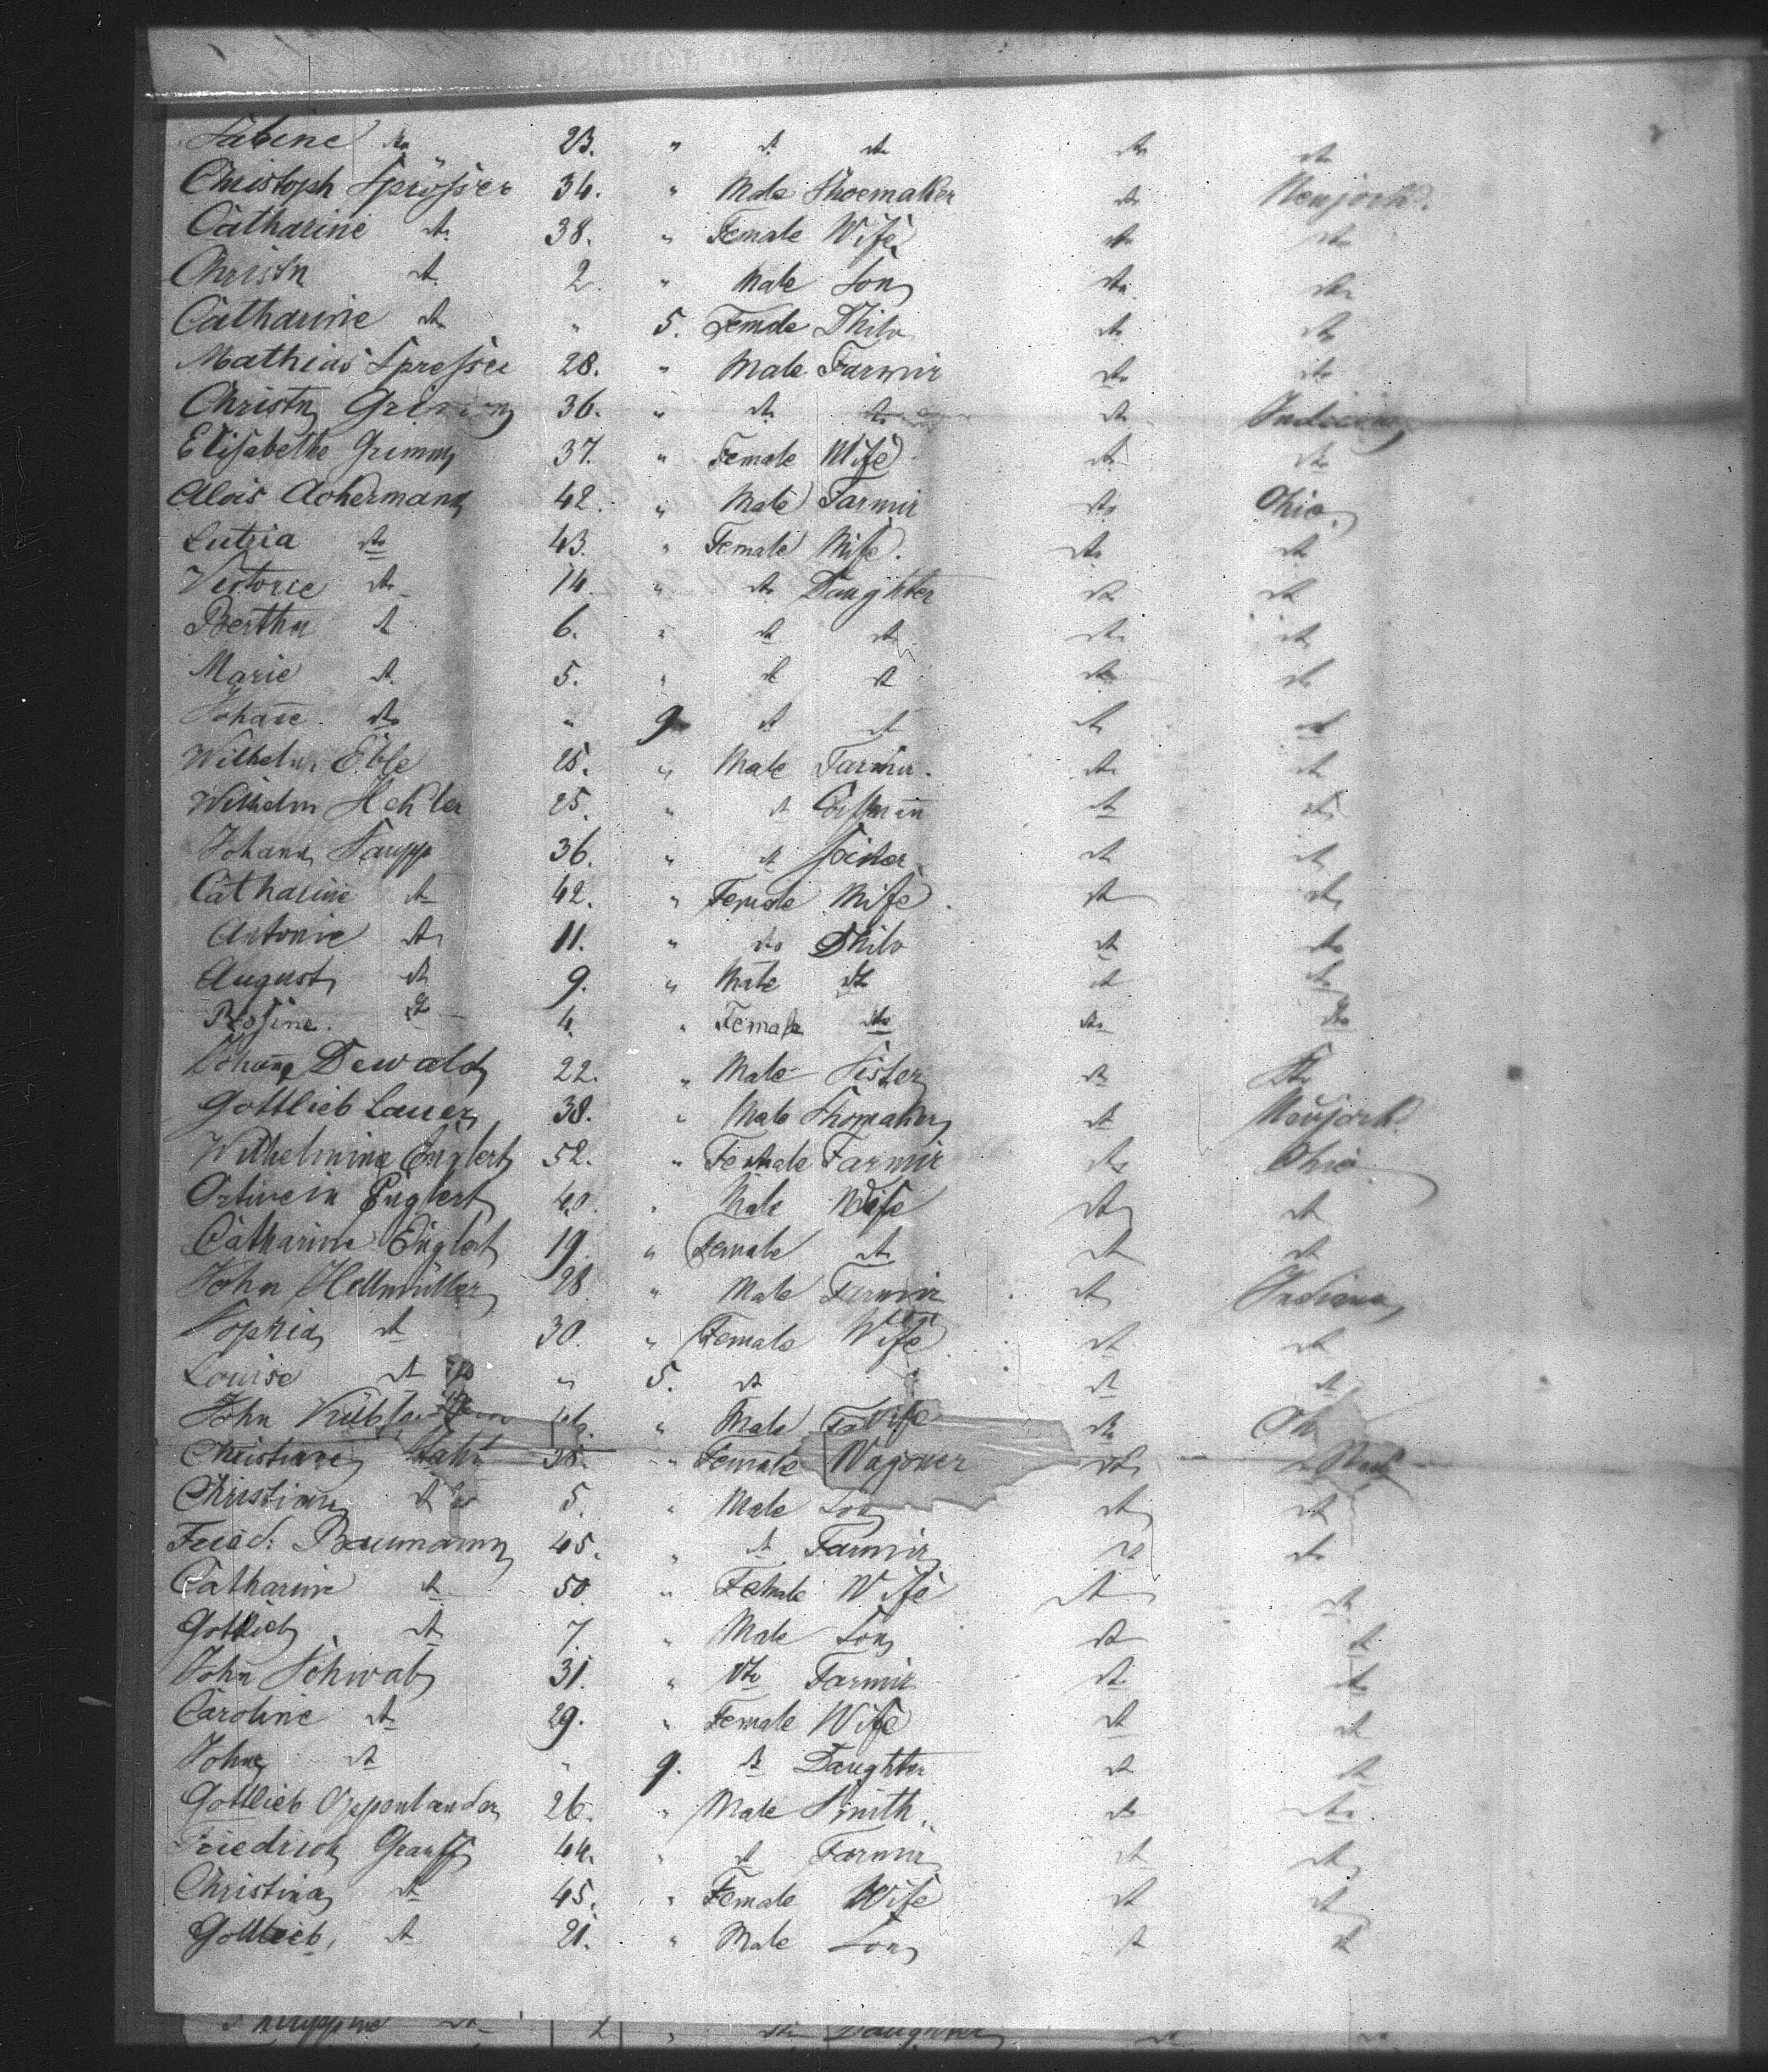 Sabine do 23. " do do do do
Christoph Sprösser 34. " Male Shoemaker do Neujork.
Catharine do 38. " Female Wife do do
Christn do 2. " Male Son do do
Catharine do " 5. Female Thild do do
Mathias Spresser 28. " Male Farmir do do
Christn Grimm 36. " do do do Indiana
Elisabethe Grimm 37. " Female Wife do do
Alois Ackermann 42. " Male Farmir do Ohio.
Lutzia do 43. " Female Wife. do do
Victorie do 14. " do Daughter do do
Bertha do 6. " do do do do
Marie do 5. " do do do do
Johane. do " 9 do do do do
Wilhelm Eble 25. " Male Farmir. do do
Wilhelm Hekler 25. " do do do
Johann Saupp 36. " do do do
Catharine do 42. " Female Wife do do
Antonie do 11. " do Thild do do
August do 9. " Male do do do
Rosine. do 4. " Female do do do
Johann Dewald 22. " Male Sister do do
Gottlieb Lauer 38. " Male Shomaker do Neujork.
Wilhelmine Englert 52. " Female Farmir do Ohio
Englert 40. " Male Wife do do
Catharine Englert 19. " Female do do do
John Hellmüller 28 " Male Farmir do Indiana
Sophia do 30. " Female Wife do do
Louise do " 5. do do do
John Kübler " Male Wife do Oh
Christiane 38. " Female Wagoner do
Christian do 5. " Male Son do do
Fried: Baumann 45. " do Farmir do do
Catharine do 50. " Female Wife do do
Gottlieb do 7. " Male Son do do
John Schwab 31. " do Farmir do do
Caroline do 29. " Female Wife do do
Johne do " 9. do Daughter do do
Gottlieb Oppenlander 26. " Male Smith. do do
Friedrich Grauff 44. " do Farmir do do
Christina do 45. " Female Wife do do
Gottlieb, do 21. " Male Son do do
Philippine do " do Daughter do do